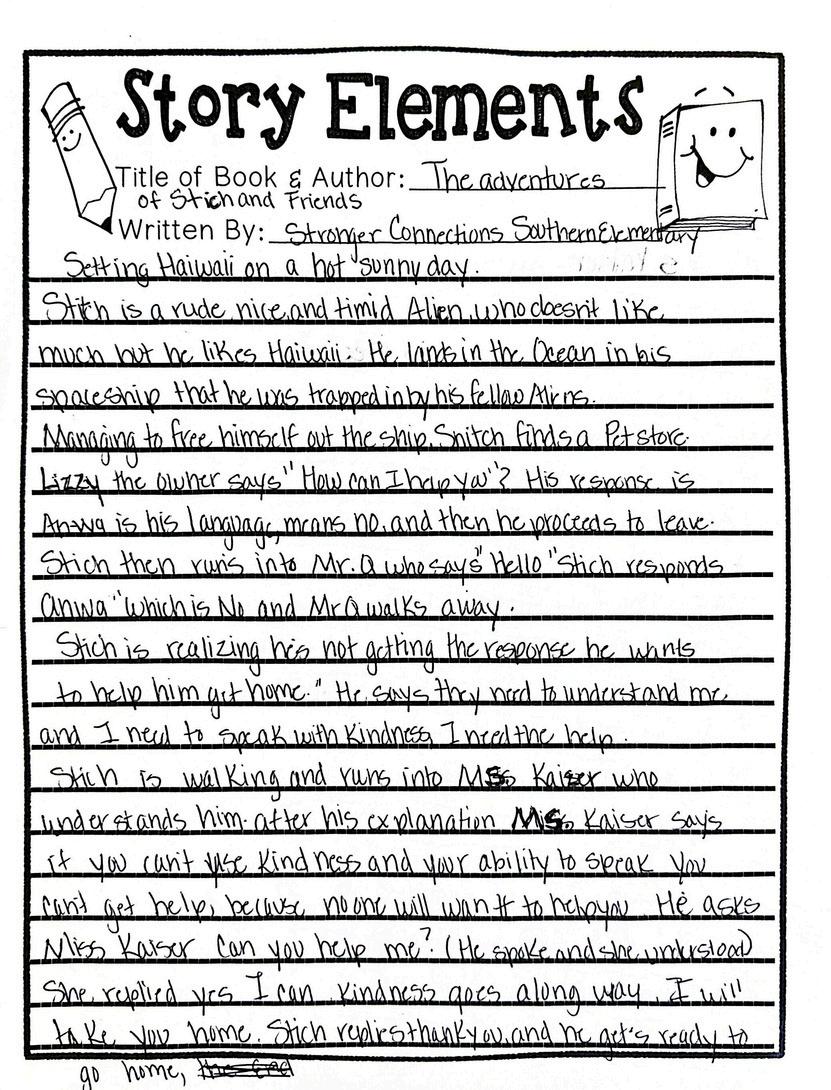 Story Elements
Title of Book & Author: The adventures
of Stich and Friends
Written By: Stronger Connections Southern Elementary
Setting Haiwaii on a hot sunny day.
Stitch is a rude, nice, and timid Alien, who doesn't like
much but he likes Haiwaii. He lands in the Ocean in his
spaceship that he was trapped in by his fellow Aliens.
Managing to free himself out the ship. Snitch finds a Pet store.
Lizzy the owner says "How can I help you"? His response is
Anwa is his language, means no, and then he proceeds to leave.
Stich then run's into Mr. Q who says "Hello" Stich responds
anwa "which is No and Mr Q walks away.
Stich is realizing he's not getting the response he wants
to help him get home." He says they need to understand me,
and I need to speak with Kindness, I need the help.
Stich is walKing and runs into Miss Kaiser who
understands him. after his explanation Miss Kaiser says
if you can't use Kindness and your ability to speak you
can't get help, because no one will want to help you He asks
Miss Kaiser Can you help me? (He spoke and she understood)
She replied yes I can. Kindness goes along way. I will
take you home. Stich replies thank you, and he get's ready to
go home, the End